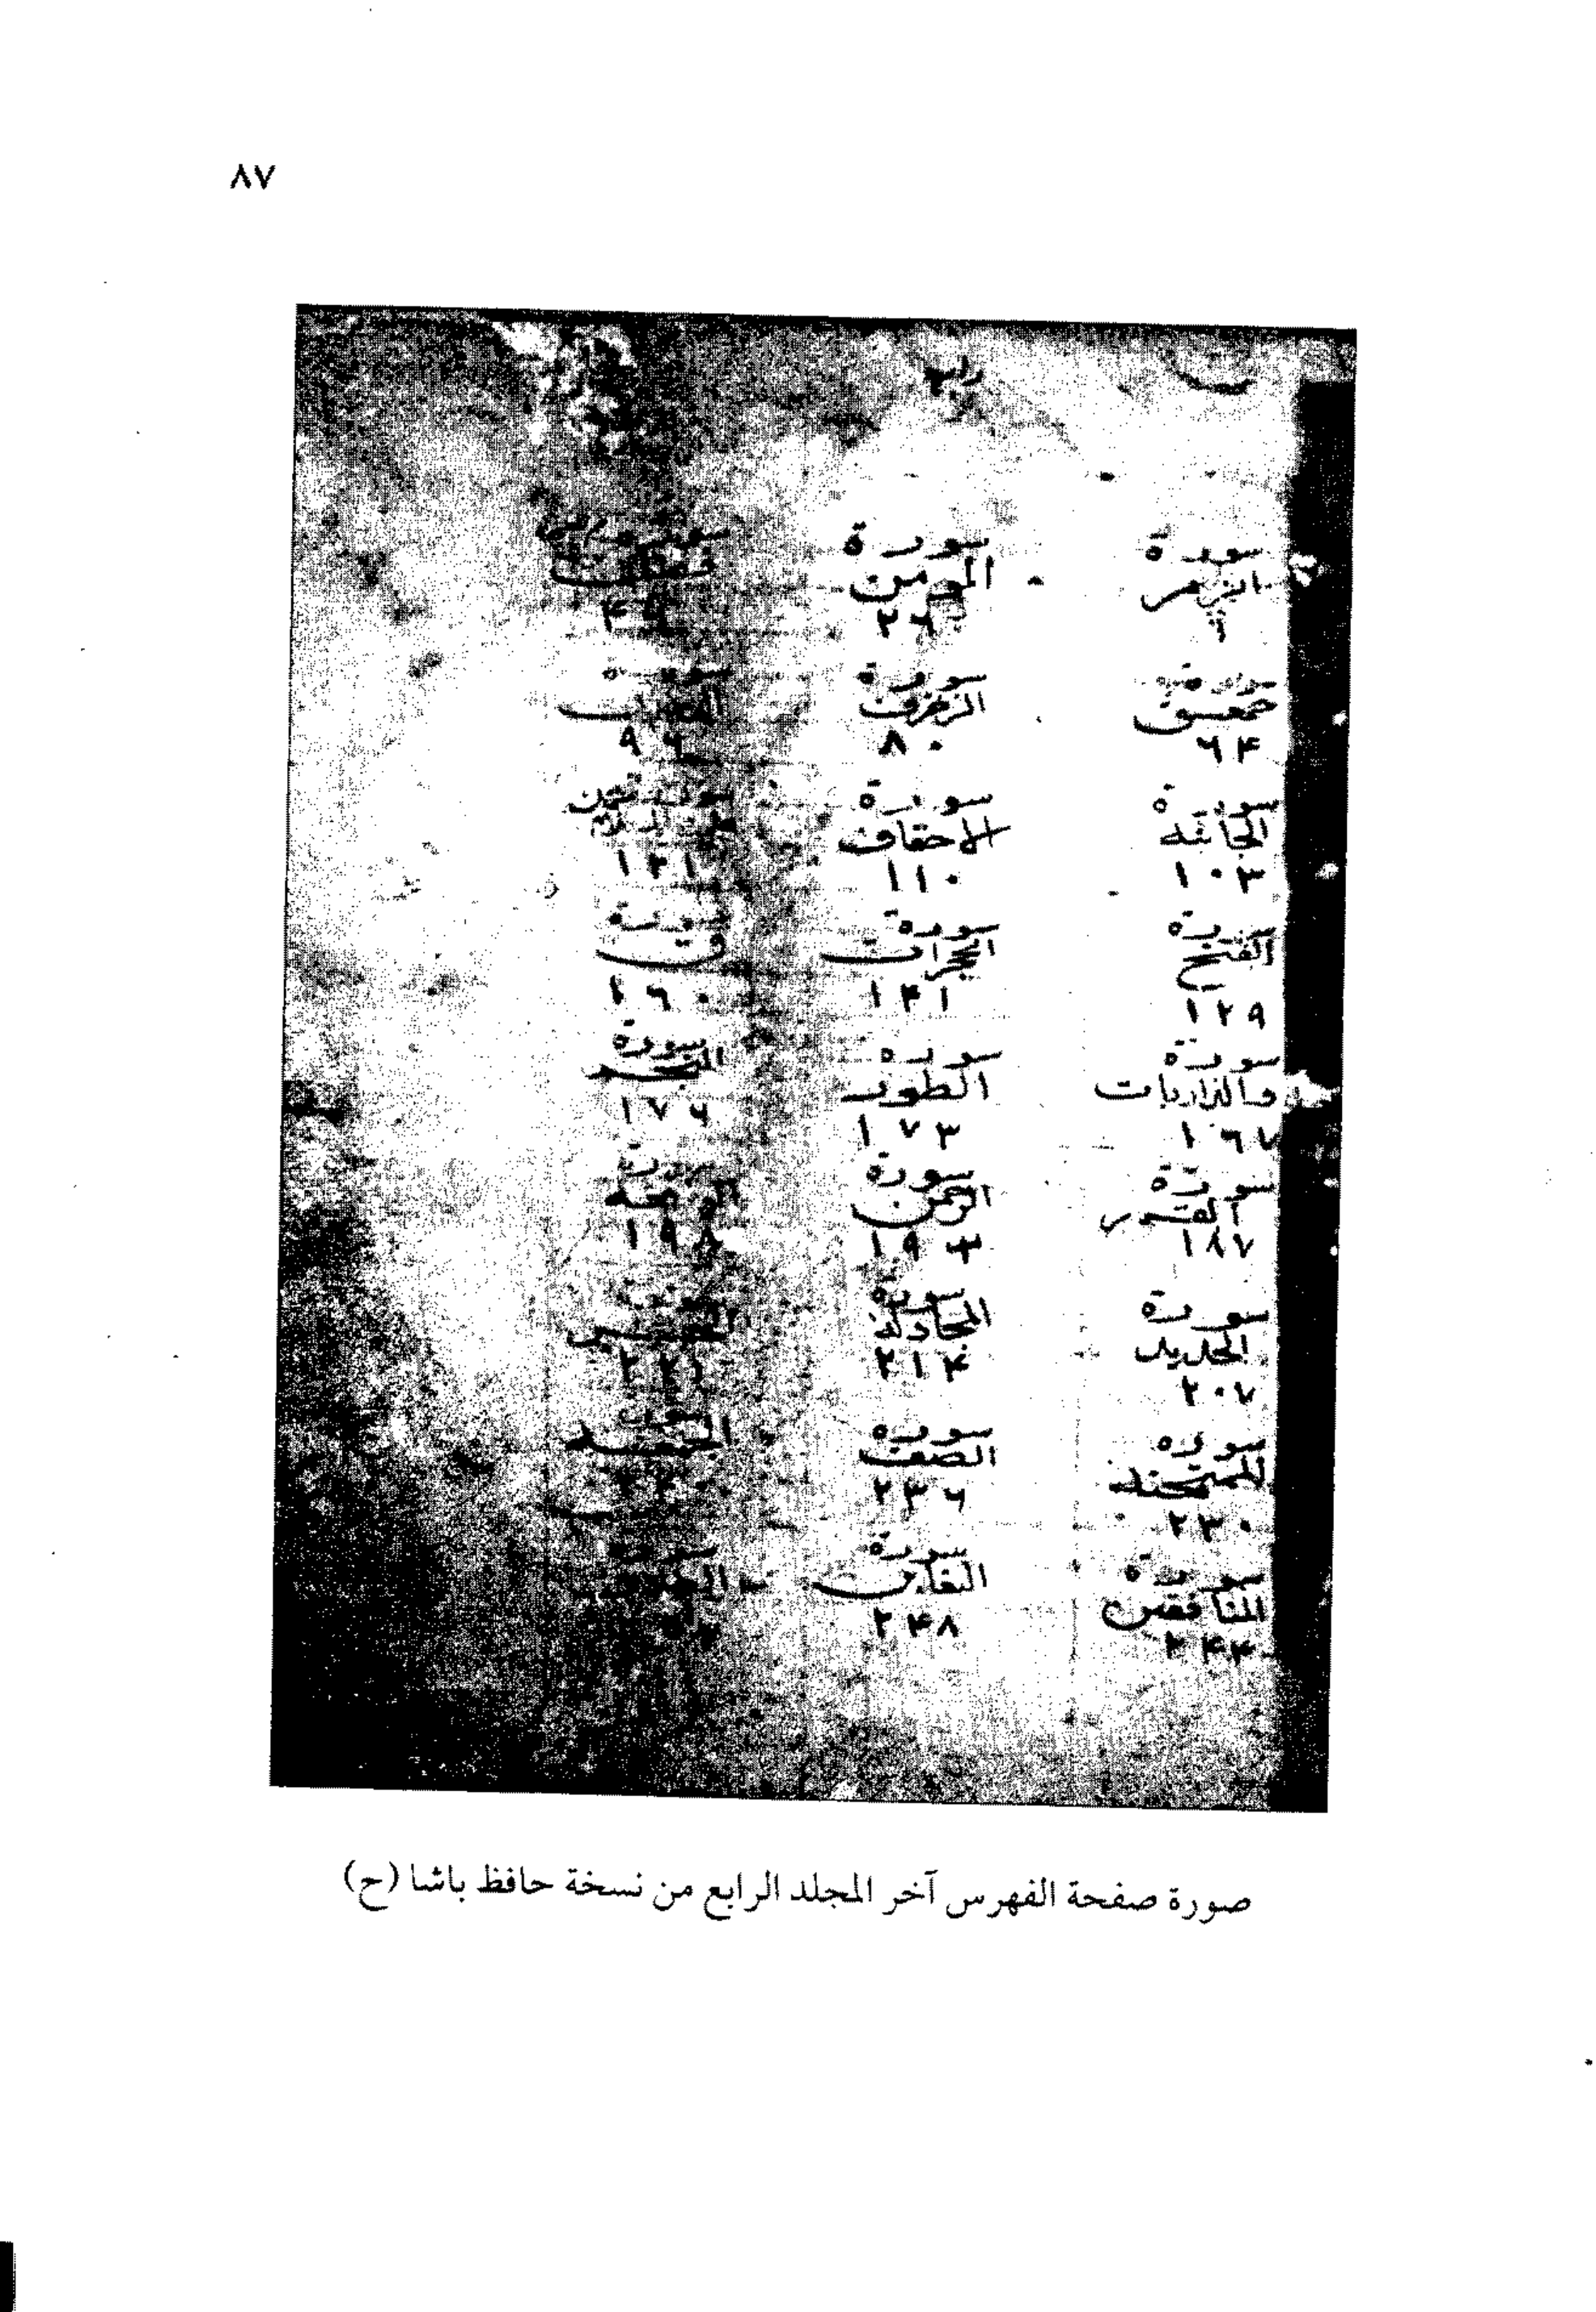 ٨٧
رابع
سورة الزمر
سورة المومن ٢٦
سورة فصلت
حمعسق ٦٤
سورة الزخرف ٨٠
سورة ٩٦
سورة الجاثية ١٠٣
سورة الاحقاف ١١٠
١٢١
سورة الفتح ١٢٩
سورة الحجرات ١٤١
سورة ق ١٦٠
سورة والذاريات ١٦٧
سورة الطور ١٧٣
سورة النجم ١٧٦
سورة القمر ١٨٧
سورة الرحمن ١٩٣
سورة الواقعه ١٩٨
سورة الحديد ٢٠٧
سورة المجادلة ٢١٤
سورة الحشر ٢٢١
سوره الممتحنة ٢٣٠
سوره الصف ٢٣٦
سورة الجمعه
سورة المنافقين ٢٤٣
سورة التغابن ٢٤٨
سورة
صورة صفحة الفهرس آخر المجلد الرابع من نسخة حافظ باشا (ح)